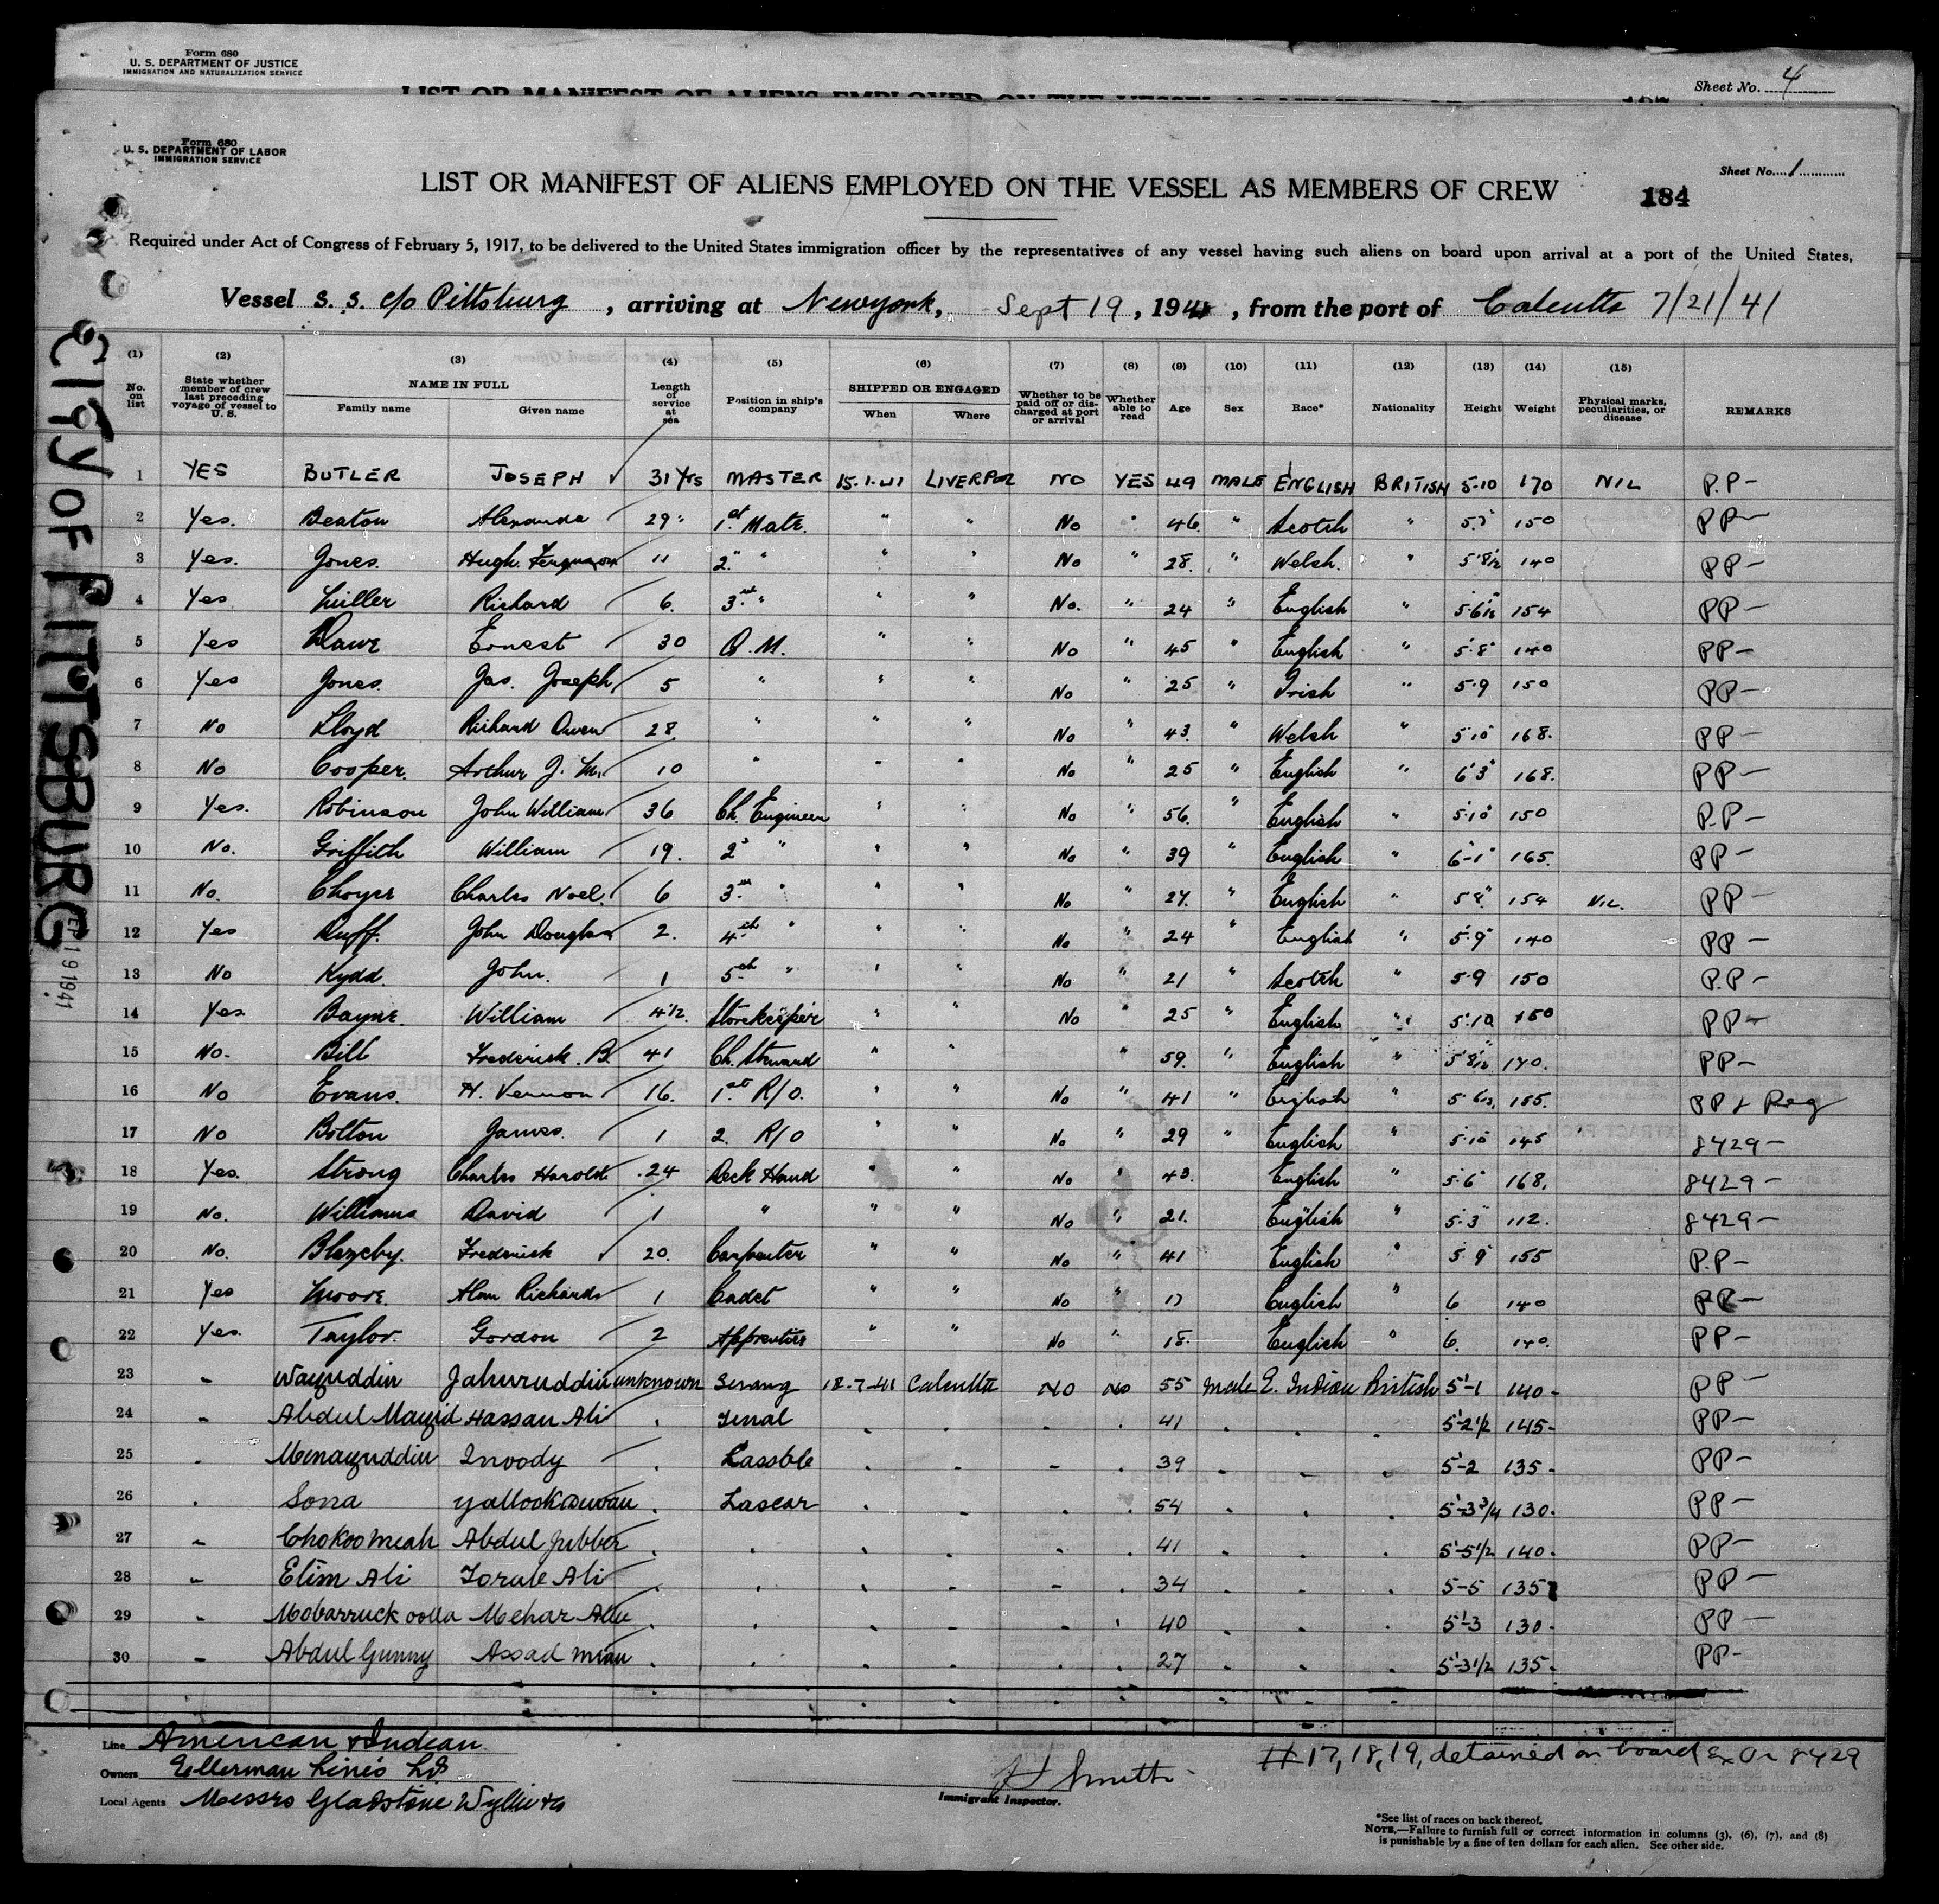 Form 680
U. S. DEPARTMENT OF JUSTICE
IMMIGRATION AND NATURALIZATION SERVICE
Sheet No. 4
LIST OR MANIFEST OF ALIENS EMPLOYED ON THE VESSEL AS MEMBERS OF
Form 680
U. S. DEPARTMENT OF LABOR
IMMIGRATION SERVICE
Sheet No. 1
LIST OR MANIFEST OF ALIENS EMPLOYED ON THE VESSEL AS MEMBERS OF CREW
184
Required under Act of Congress of February 5, 1917, to be delivered to the United States immigration officer by the representatives of any vessel having such aliens on board upon arrival at a port of the United States,
Vessel S. S. c/o Pittsburg, arriving at Newyork, Sept 19, 1941, from the port of Calcutta 7/21/41
CITY OF PITTSBURG
SEP 19 1941
(1) (2) (3) (4) (5) (6) (7) (8) (9) (10) (11) (12) (13) (14) (15)
No. on list
State whether member of crew last preceding voyage of vessel to U. S.
NAME IN FULL
Family name
Given name
Length of service at sea
Position in ship's company
SHIPPED OR ENGAGED
When
Where
Whether to be paid off or discharged at port or arrival
Whether able to read
Age
Sex
Race*
Nationality
Height
Weight
Physical marks, peculiarities, or disease
REMARKS
1 YES BUTLER JOSEPH 31 Yrs MASTER 15.1.41 LIVERPOL NO YES 49 MALE ENGLISH BRITISH 5-10 170 NIL P.P-
2 Yes. Beaton 29" 1st Mate. " " No " 46. " Scotch " 150 PP-
3 Yes. Jones. Hugh Ferguson 11 2" " " " No " 28. " Welsh. " 5'8½ 140 PP-
4 Yes Miller Richard 6. 3rd " " " No. " 24 " English " 5.6½ 154 PP-
5 Yes Dawe Ernest 30 Q.M. " No " 45 " English " 5.8" 140 PP-
6 Yes Jones. Jas. Joseph 5 " " " No " 25 " Irish " 5.9 150 PP-
7 No Lloyd Richard Owen 28 " " " No " 43. " Welsh " 5.10 168. PP-
8 No Cooper. Arthur J. M. 10 " " " No " 25 " English " 6'3" 168. PP-
9 Yes. Robinson John William 36 Ch. Engineer " " No " 56. " English " 5.10 150 P.P-
10 No. Griffith William 19. 2d " " " No " 39 " English " 6-1" 165. PP-
11 No. Choyce Charles Noel. 6 3rd " " " No " 27. " English " 5 8" 154 NIL. PP-
12 Yes Duff. John Douglas 2. 4th " " " No " 24 " English " 5.9" 140 PP-
13 No Kydd. John. 1 5th " " " No " 21 " Scotch " 5.9 150 P.P-
14 Yes. Bayne. William 4½. Storekeeper " " No " 25 " English " 5'.10 150 PP-
15 No. Frederick. B. 41 Ch. Steward " " " 59. " English " 5'8½ 140. PP-
16 No Evans. H. Vernon 16. 1st R/O. " " No " 41 " English " 5 6½. 155. PP & Reg
17 No Bolton James. 1 2. R/O " " No " 29 " English " 5.10 145 8429-
18 Yes. Strong Charles Harold 24 Deck Hand " " No " 43. English " 5.6 168. 8429-
19 No. Williams David 1 " " " No " 21. English " 5.3" 112. 8429-
20 No. Blazeby. Frederick 20. Carpenter " " No " 41 English " 5 9" 155 P.P-
21 Yes Moore. Alan Richard 1 Cadet " " No " English " 6 140 PP-
22 Yes. Taylor. Gordon 2 Apprentice " " No " 18. English " 6. 140. PP-
23 " Wayuddin Jahuruddin unknown Serang 18-7-41 Calcutta NO NO 55 male E. Indian British 5'-1 140- PP-
24 " Abdul Mayid Hassan Ali 41 5'-2½ 145- PP-
25 Menayuddin 39 5'-2 135- PP-
26 Sona Lascar 54 5'-3¾ 130. PP-
27 " Chokoomeah Abdul Jubber 41 5'-5½ 140. PP-
28 " Elim Ali Torab Ali 34 5-5 135 PP-
29 " Mobarruck oolla Mehar Allu 40 5'-3 130. PP-
30 " Abdul Gunny Assad mian 27 5'-3½ 135. PP-
Line American & Indian
Owners Ellerman Lines Ld
Local Agents Messrs Gladstone Wyllie & Co
H Smith
Immigrant Inspector.
# 17, 18, 19, detained on board 8429
*See list of races on back thereof.
NOTE.—Failure to furnish full or correct information in columns (3), (6), (7), and (8)
is punishable by a fine of ten dollars for each alien. See other side.